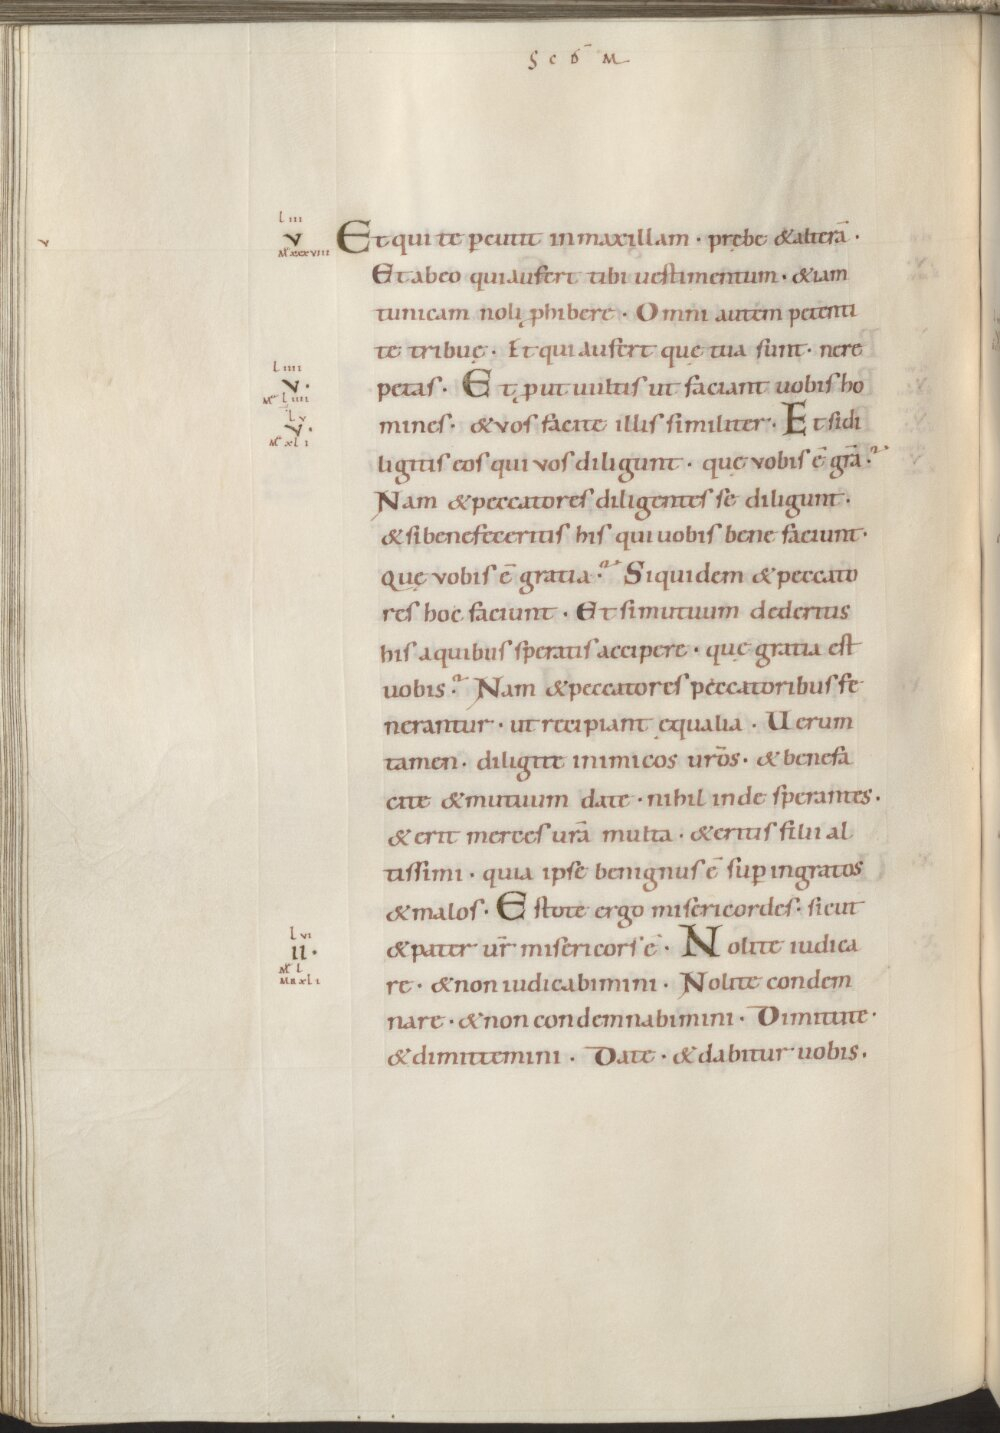 SCDˉ M
l iii
v
Mᵗ xxxviii
Et qui te percutit in maxillam · prębe & alterā ·
Et ab eo qui aufert tibi uestimentum · & iam
tunicam noli ꝓhibere · Omni autem petenti
te tribuę · Et qui aufert quę tua sunt · ne re
l iiii
v ·
Mᵗ l iiii
petas · Et ꝓut uultis ut faciant uobis ho
l v
v ·
Mᵗ xl i
mines · & vos facite illis similiter · Et si di
ligitis eos qui vos diligunt · quę vobis ē grā ·
Nam & peccatores diligentes se diligunt ·
& si benefeceritis his qui uobis bene faciunt ·
Quę vobis ē gratia · Siquidem & peccato
res hoc faciunt · Et si mutuum dederitis
his a quibus speratis accipere · quę gratia est
uobis · Nam & peccatores peccatoribus fe
nerantur · ut recipiant ęqualia · Uerum
tamen · diligite inimicos urōs · & benefa
cite & mutuum date · nihil inde sperantes ·
& erit merces urā multa · & eritis filii al
tissimi · quia ipse benignus ē suꝑ ingratos
& malos · Estote ergo misericordes · sicut
l vi
ii ·
Mᵗ l
MR xl i
& pater ur̄ misericors ē · Nolite iudica
re · & non iudicabimini · Nolite condem
nare · & non condemnabimini · Dimittite ·
& dimittemini · Date · & dabitur uobis ·